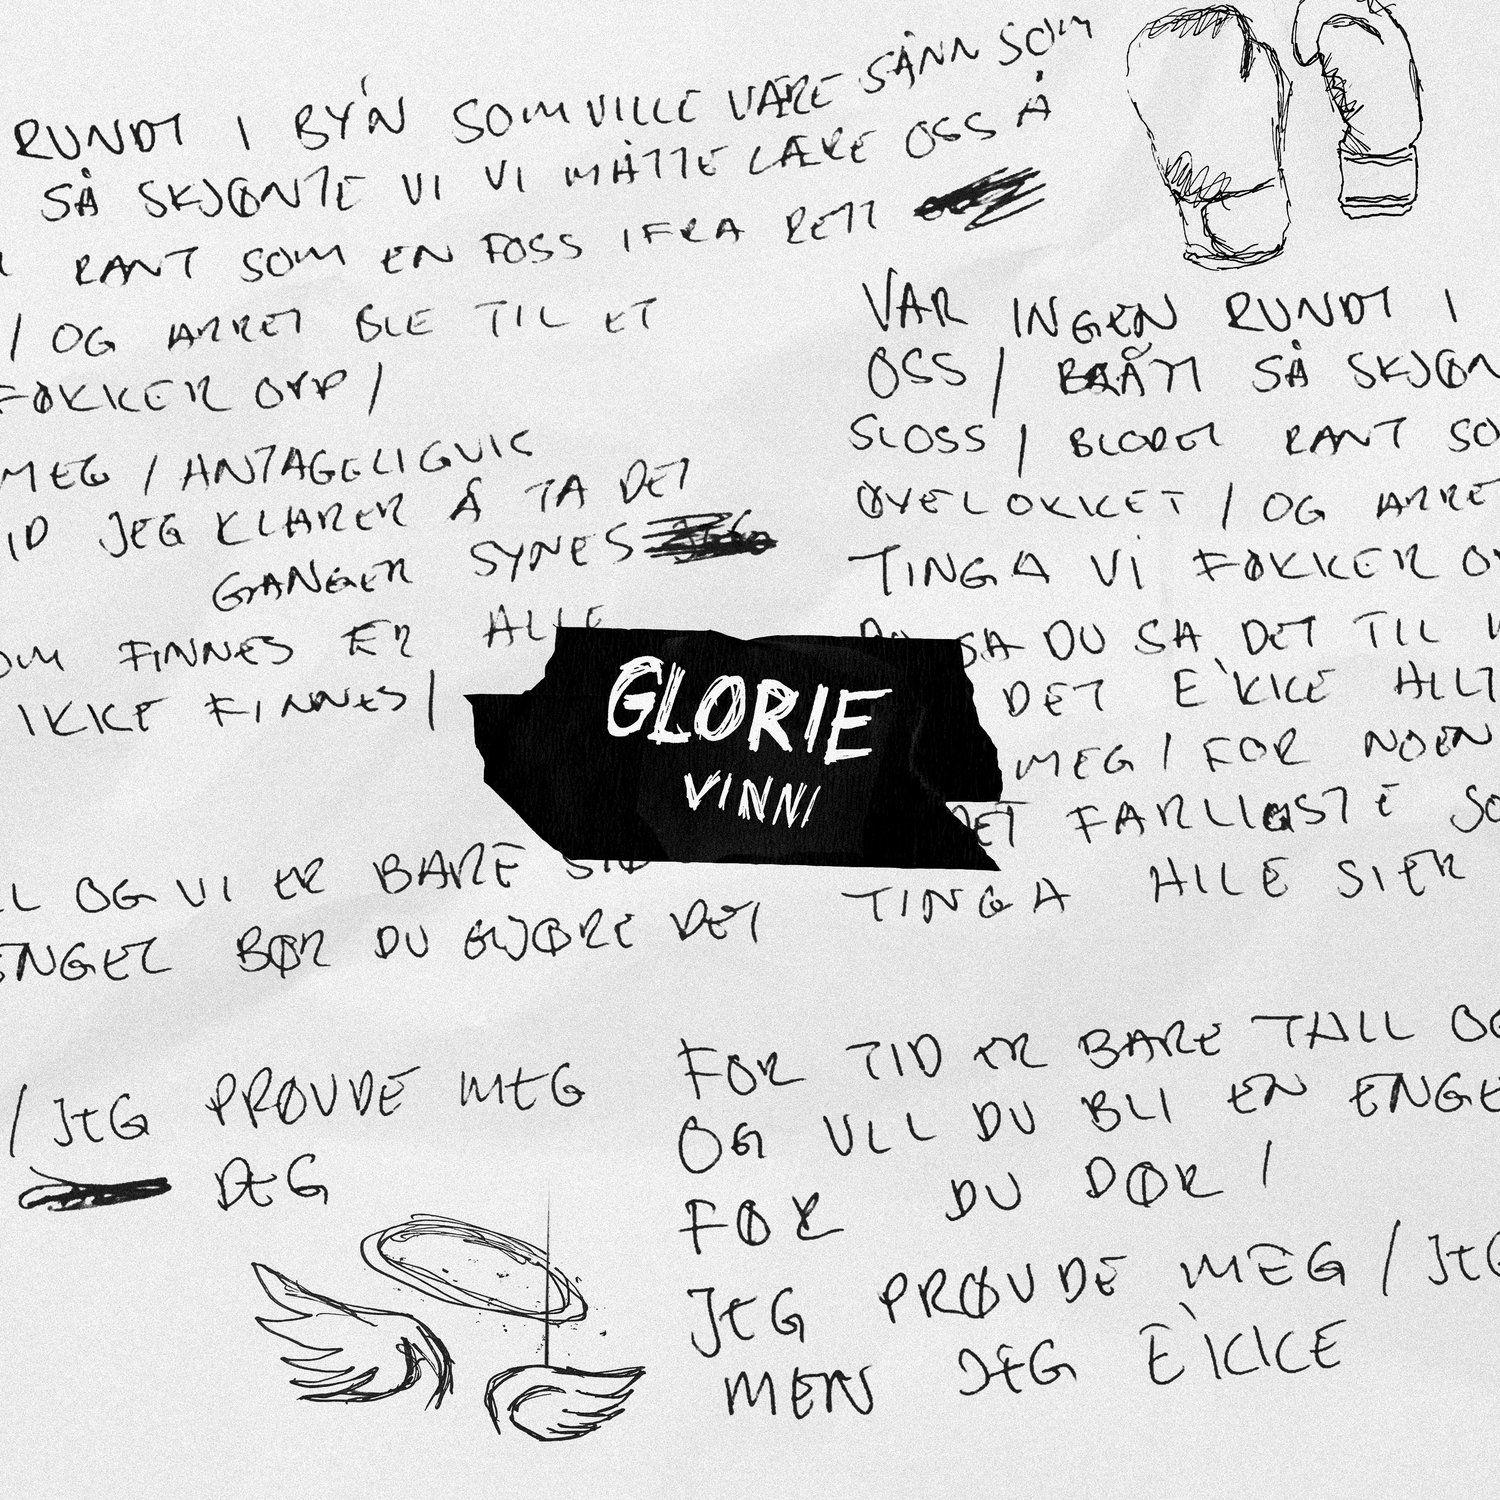 RUNDT I BY'N SOM VILLE VÆRE SÅNN SOM
SÅ SKJØNTE VI VI MÅTTE LÆRE OSS Å
RANT SOM EN FOSS IFRA RETT
/ OG ARRET BLE TIL ET
FØKKER OPP /
MEG / ANTAGELIGVIS
TID JEG KLARER Å TA DET
GANGER SYNES
SOM FINNES ER ALLE
IKKE FINNES /
VAR INGEN RUNDT I
OSS / BRÅTT SÅ SKJØN
SLOSS / BLODET RANT SO
ØYELOKKET / OG ARRET
TINGA VI FØKKER O
SA DU SA DET TIL
DET E'KKE ALLT
MEG / FOR NOEN
DET FARLIGSTE SO
TINGA ALLE SIER
GLORIE
VINNI
LL OG VI ER BARE
ENGEL BØR DU GJØRE DET
/ JEG PRØVDE MEG
DEG
FOR TID ER BARE TALL OG
OG VILL DU BLI EN ENGE
FØR DU DØR /
JEG PRØVDE MEG / JEG
MEN JEG E'KKE